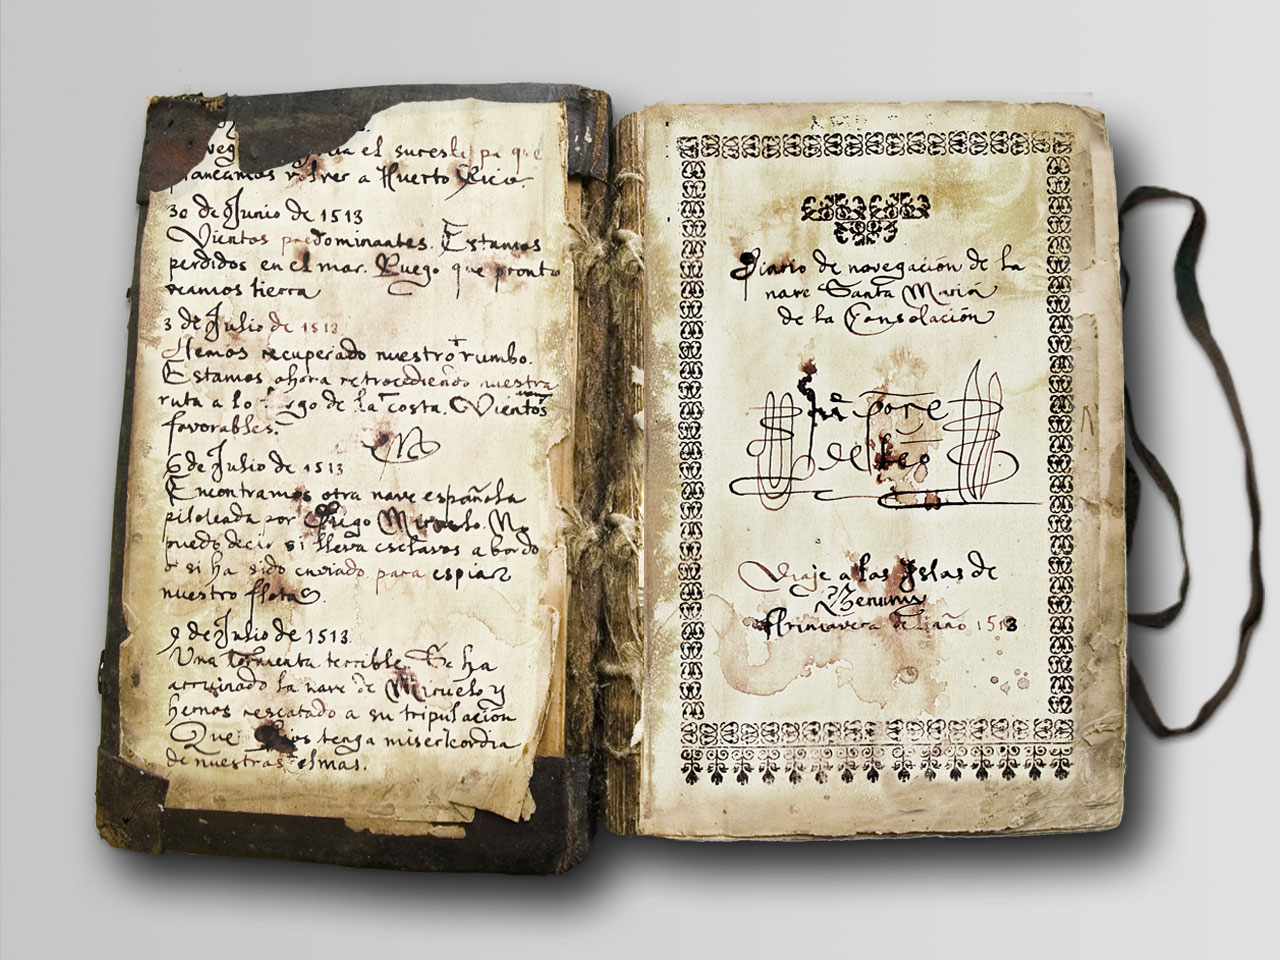 el
planeamos volver a Puerto Rico.
30 de Junio de 1513
Vientos predominantes. Estamos
perdidos en el mar. Ruego que pronto
veamos tierra
3 de Julio de 1513
Hemos recuperado nuestro rumbo.
Estamos ahora retrocediendo nuestra
ruta a lo largo de la costa. Vientos
favorables.
6 de Julio de 1513
Encontramos otra nave española
piloteada por Diego Miruelo. No
puedo decir si lleva esclavos a bordo
o si ha sido enviado para espiar
nuestro flota.
9 de Julio de 1513
Una tormenta terrible. Se ha
arruinado la nave de Miruelo y
hemos rescatado a su tripulación
Que Dios tenga misericordia
de nuestras almas.
Diario de navegación de la
nave Santa María
de la Consolación
Viaje a las Islas de
Primavera del año 1513